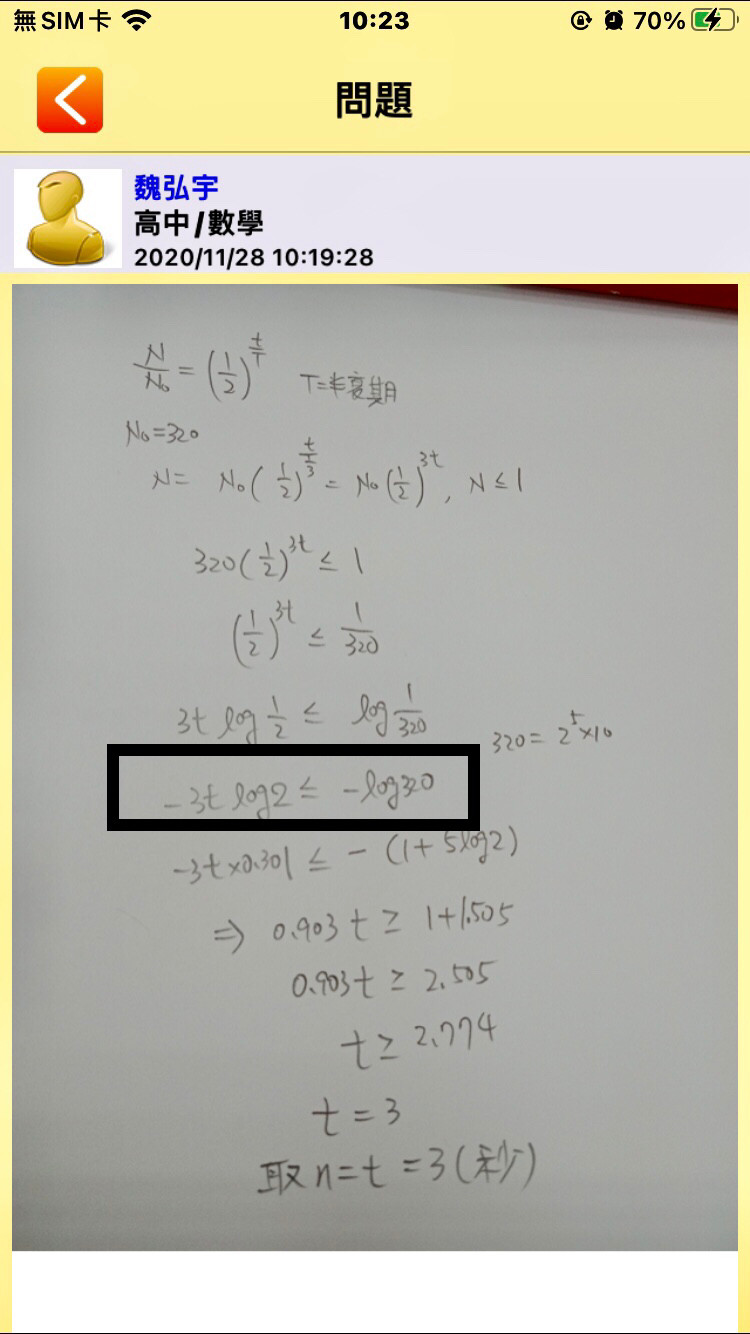 無SIM卡 10:23 70%
問題
魏弘宇
高中/數學
2020/11/28 10:19:28
N/N₀ = (1/2)^(t/T) T=半衰期
N₀=320
N= N₀(1/2)^(t/(1/3)) = N₀(1/2)^3t, N≤1
320(1/2)^3t ≤ 1
(1/2)^3t ≤ 1/320
3t log 1/2 ≤ log 1/320 320= 2⁵×10
-3t log2 ≤ -log320
-3t×0.301 ≤ -(1+5log2)
⇒ 0.903t ≥ 1+1.505
0.903t ≥ 2.505
t ≥ 2.774
t = 3
取n=t=3(秒)